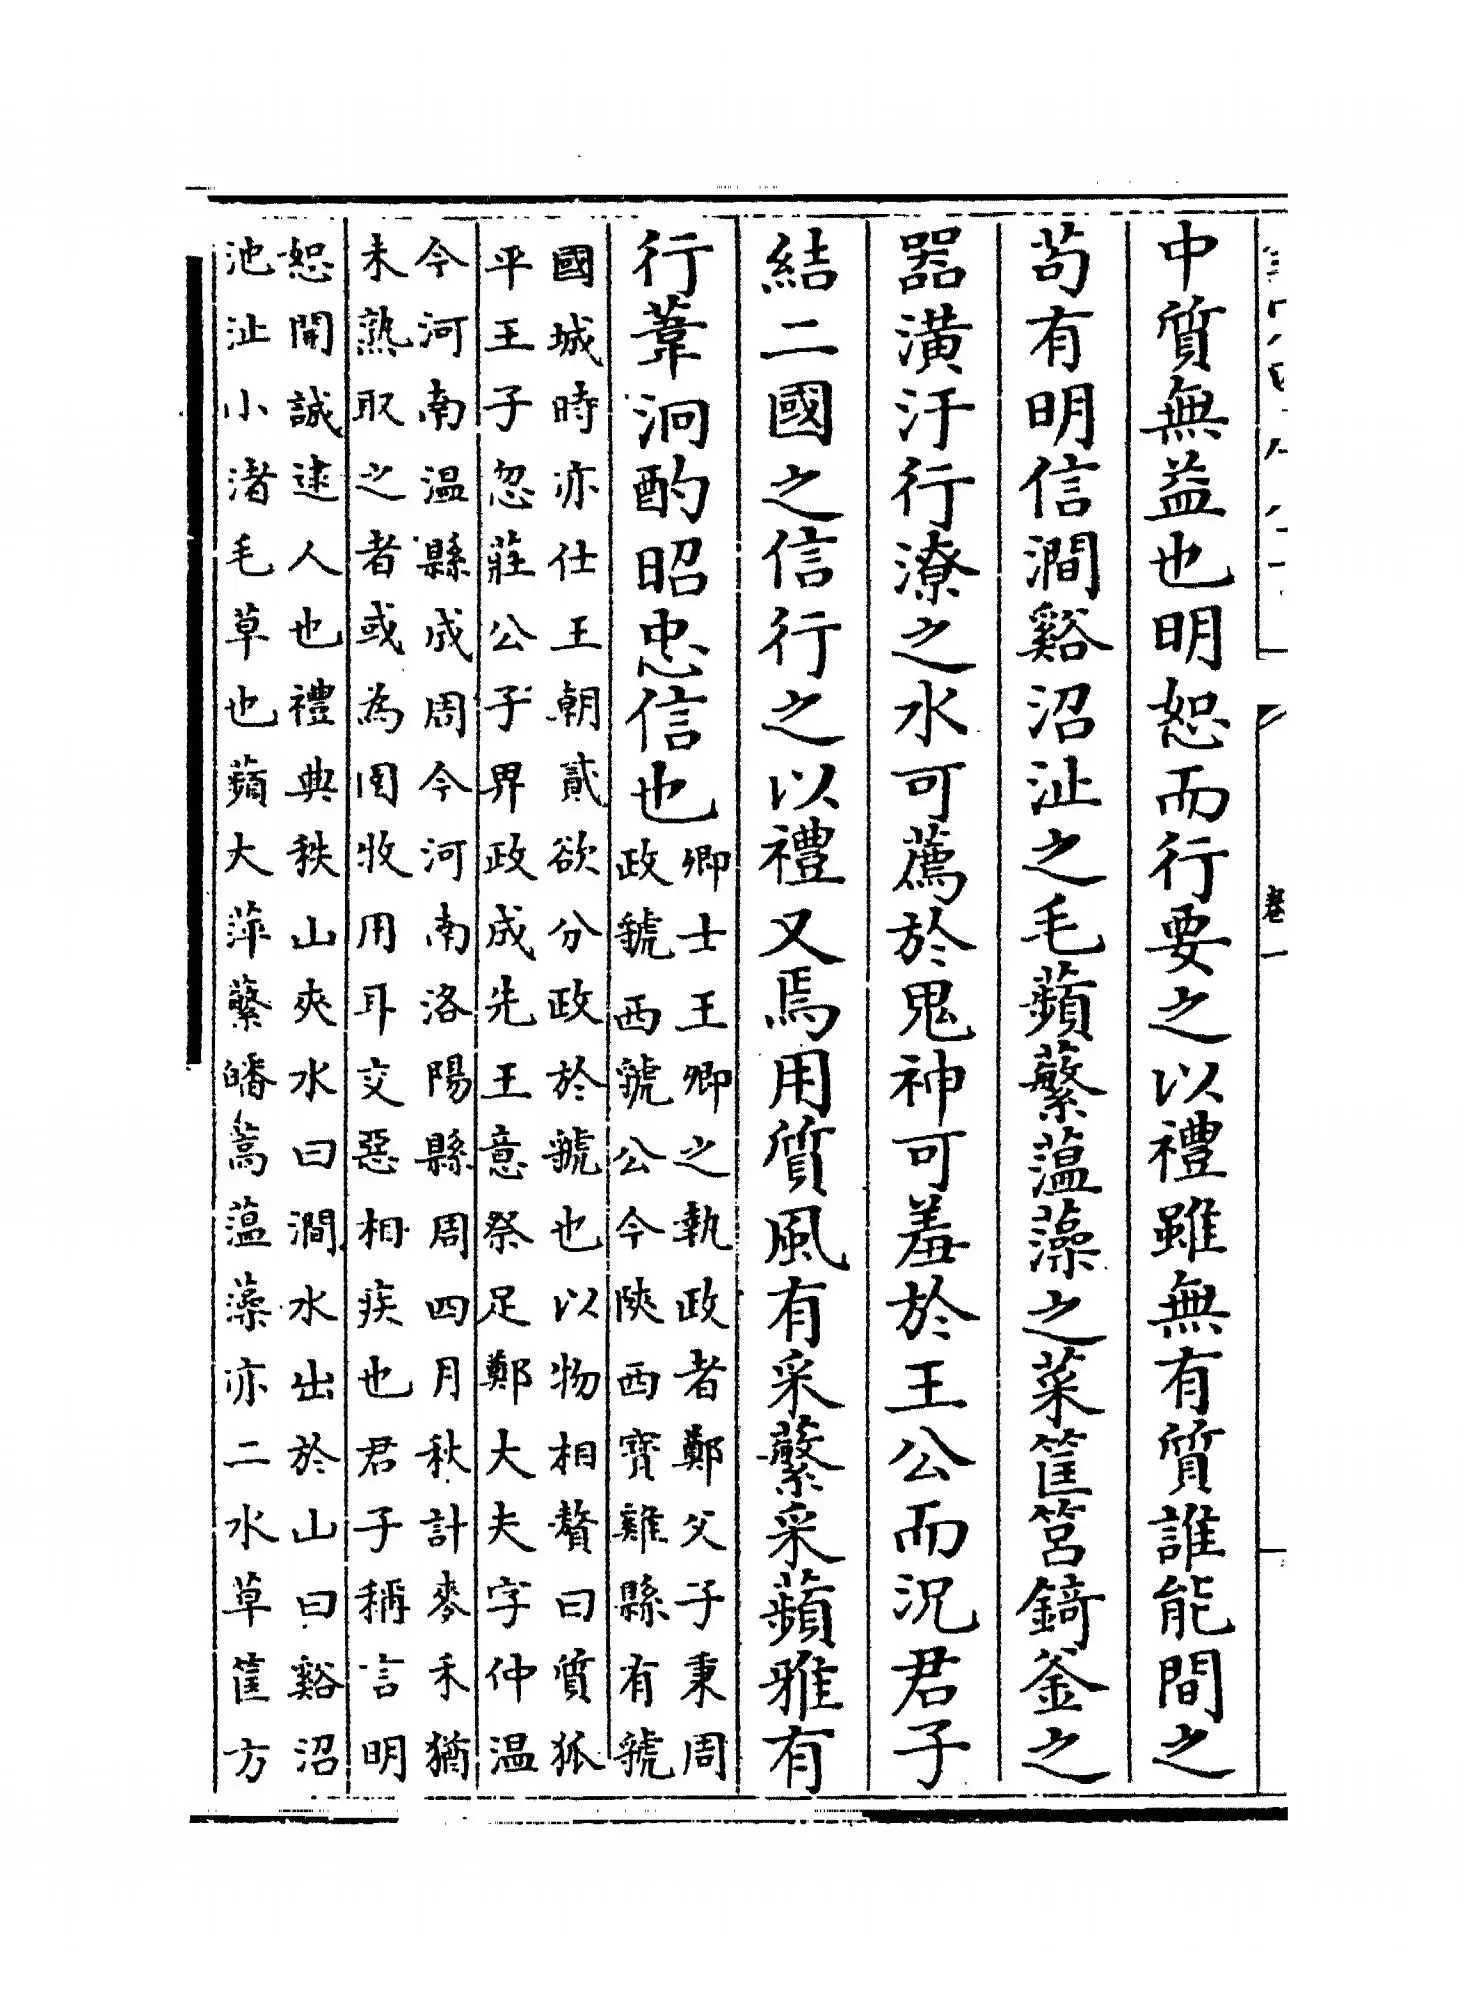 卷一
中質無益也明恕而行要之以禮雖無有質誰能間之
苟有明信澗谿沼沚之毛蘋蘩薀藻之菜筐筥錡釜之
器潢汙行潦之水可薦於鬼神可羞於王公而況君子
結二國之信行之以禮又焉用質風有采蘩采蘋雅有
行葦泂酌昭忠信也
卿士王卿之執政者鄭父子秉周
政虢西虢公今陝西寶雞縣有虢
國城時亦仕王朝貳欲分政於虢也以物相贅曰質狐
平王子忽莊公子畀政成先王意祭足鄭大夫字仲温
今河南温縣成周今河南洛陽縣周四月秋計麥禾猶
未熟取之者或為囷牧用耳交惡相疾也君子稱言明
恕開誠逮人也禮典秩山夾水曰澗水出於山曰谿沼
池沚小渚毛草也蘋大萍蘩皤蒿薀藻亦二水草筐方